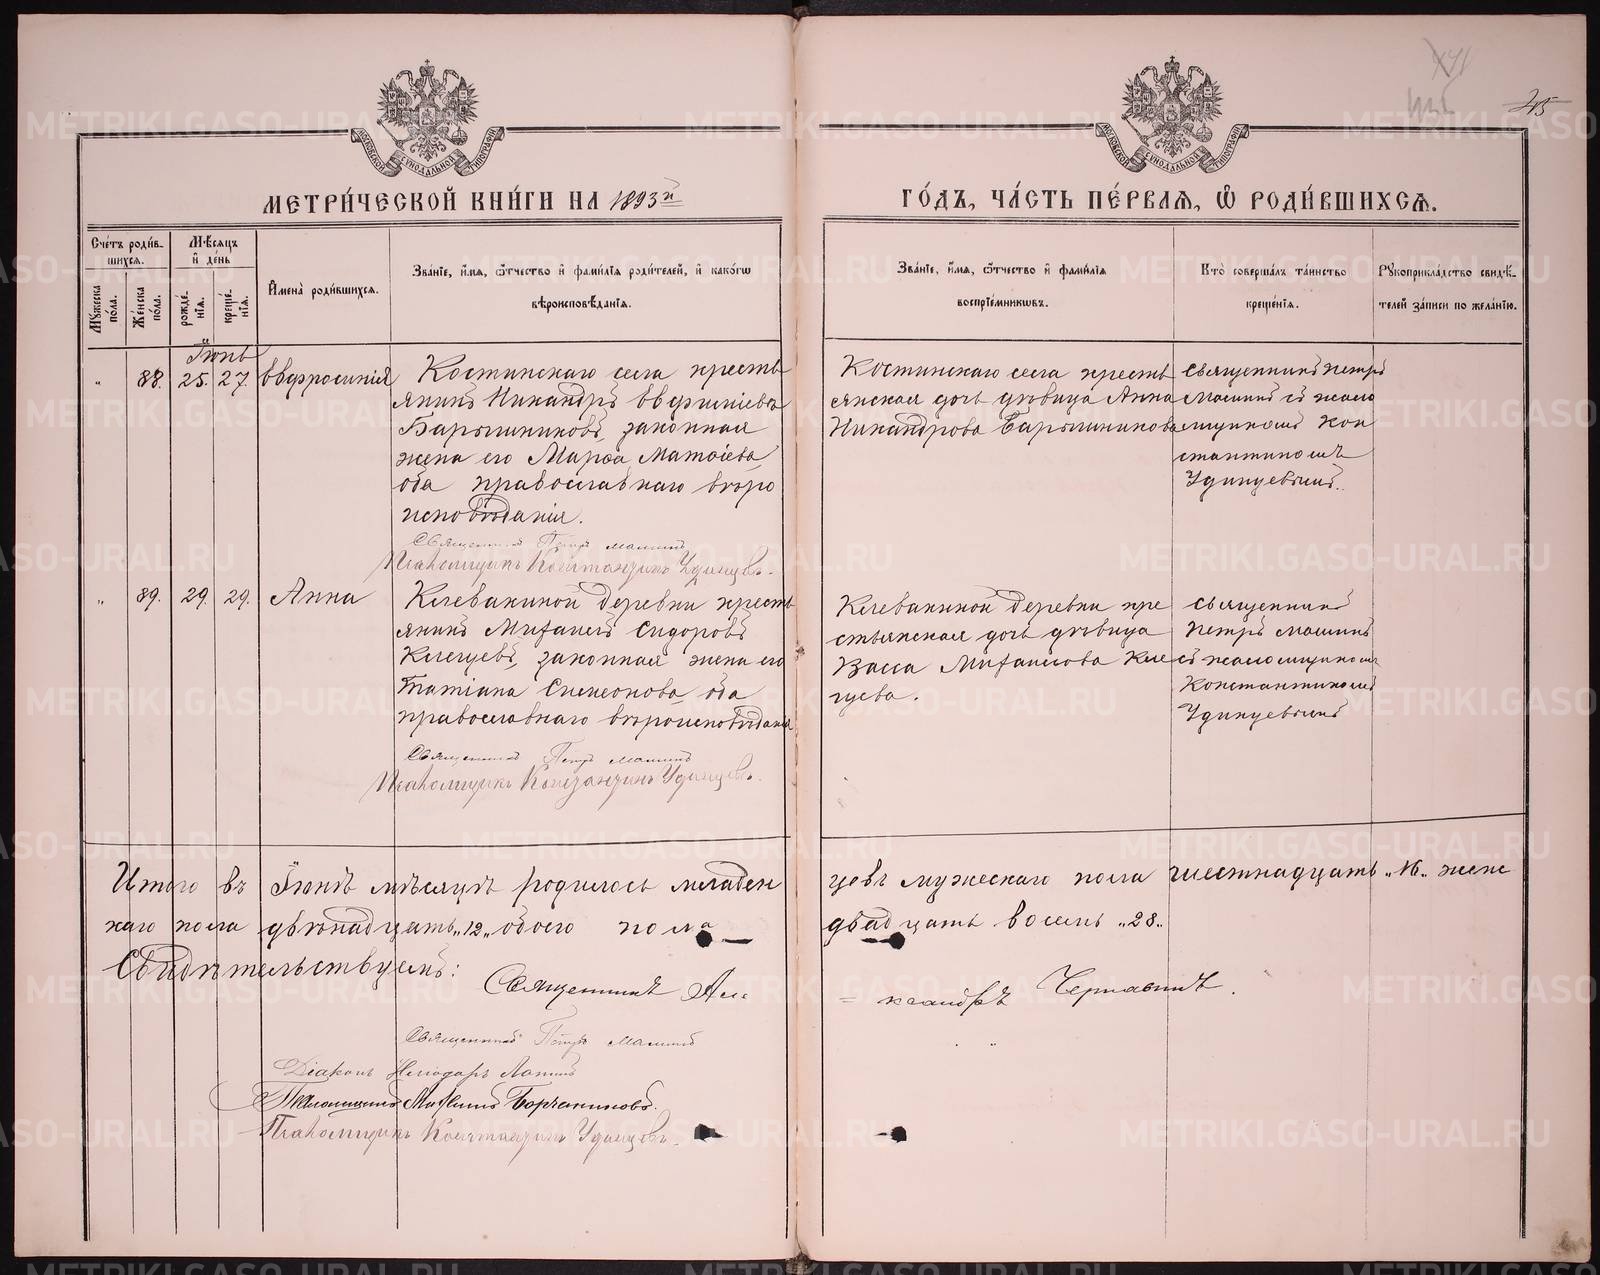 МЕТРИ́ЧЕСКОЙ КНИ́ГИ НА 1893й
ГО́ДЪ, ЧА́СТЬ ПЕ́РВАѦ, Ѡ҆ РОДИ́ВШИХСѦ.
45
Сче́тъ роди́в-
шихсѧ.
Мужеска по́ла.
Же́нска по́ла.
Мѣ́сѧцъ
и҆ де́нь
рожде́-
нїѧ.
креще́-
нїѧ.
И҆мена̀ роди́вшихсѧ.
Зва́нїе, и҆́мѧ, ѻ҆́тчество и҆ фами́лїѧ роди́телей, и҆ како́гѡ
вѣроисповѣ́данїѧ.
Зва́нїе, и҆́мѧ, ѻ҆́тчество и҆ фами́лїѧ
воспрїе́мникѡвъ.
Кто̀ соверша́лъ та́инство
креще́нїѧ.
Рукоприкла́дство свидѣ́-
телей за́писи по жела́нїю.
Іюнь
„ 88. 25. 27. Евфросинія
Костинскаго села кресть
янинъ Никандръ Евфиміевъ
Барышниковъ, законная
жена его Марѳа Матѳіева,
оба православнаго вѣро
исповѣданія.
Священникъ Петръ Маминъ
Псаломщикъ Константинъ Удинцевъ.
Костинскаго села кресть
янская дочь дѣвица Анна
Никандрова Барышникова
Священникъ Петръ
Маминъ съ псало
мщикомъ Кон
стантиномъ
Удинцевымъ.
„ 89. 29. 29. Анна
Клевакиной деревни кресть
янинъ Михаилъ Сидоровъ
Клещевъ, законная жена его
Татіана Симеонова, оба
православнаго вѣроисповѣданія
Священникъ Петръ Маминъ
Псаломщикъ Константинъ Удинцевъ.
Клевакиной деревни кре
стьянская дочь дѣвица
Васса Михаилова Кле
щева.
Священникъ
Петръ Маминъ
съ псаломщикомъ
Константиномъ
Удинцевымъ
Итого въ Іюнѣ мѣсяцѣ родилось младен
цевъ мужескаго пола шестнадцать „16„ женс
каго пола двѣнадцать „12„ обоего пола
двадцать восемь „28„.
Свидѣтельствуемъ:
Священникъ Але
= ксандръ Чернавинъ.
Священникъ Петръ Маминъ
Діаконъ Иліодоръ Лапинъ
Псаломщикъ Михаилъ Борчаниновъ.
Псаломщикъ Константинъ Удинцевъ.
METRIKI.GASO-URAL.RU